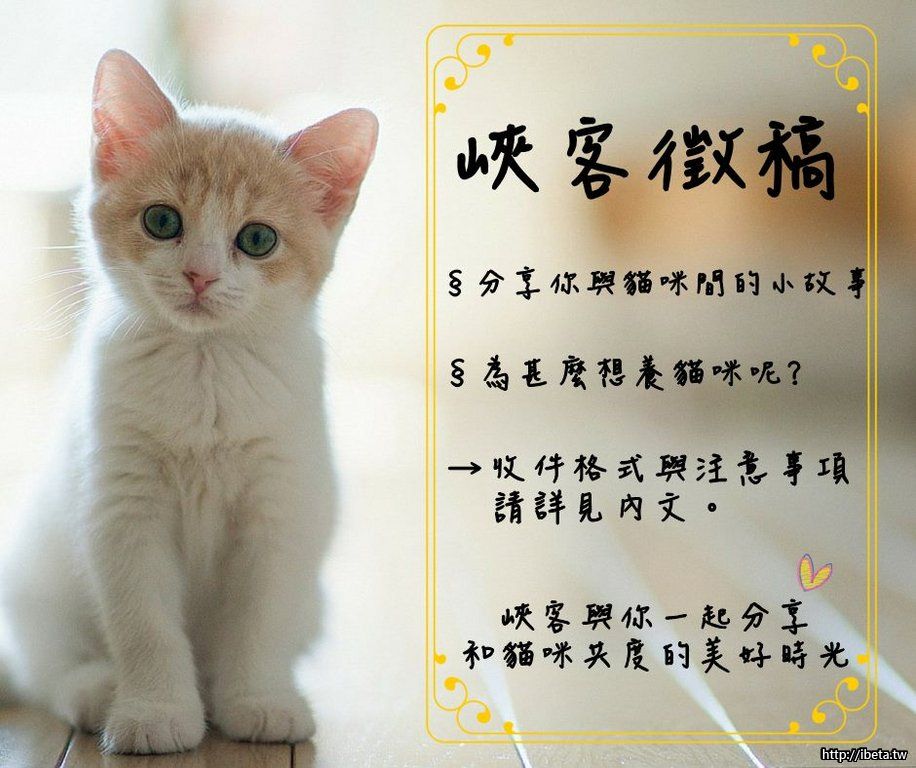 峽客徵稿
§分享你與貓咪間的小故事
§為甚麼想養貓咪呢?
→收件格式與注意事項
請詳見內文。
峽客與你一起分享
和貓咪共度的美好時光
http://ibeta.tw